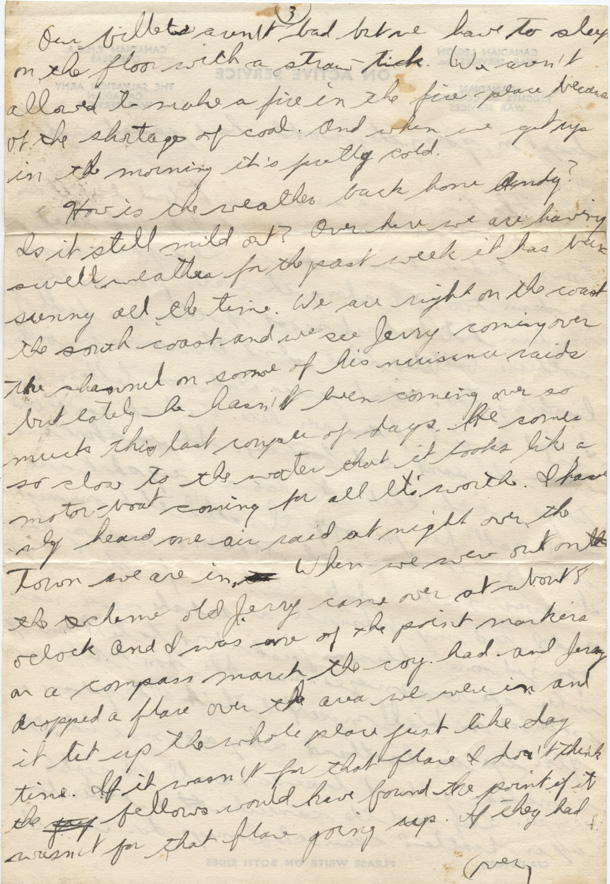 (3)
Our billets aren't bad but we have to sleep
on the floor with a straw tick. We aren't
allowed to make a fire in the fire place because
of the shortage of coal. And when we get up
in the morning it's pretty cold.
How is the weather back home Andy?
Is it still mild out? Over here we are having
swell weather for the past week it has been
sunny all the time. We are right on the coast
the south coast and we see Jerry coming over
the channel on some of his nuisance raids
but lately he hasn't been coming over so
much this last couple of days. He comes
so close to the water that it looks like a
motor-boat coming for all its worth. I have
only heard one air raid at night over the
Town we are in. When we were out on the
the scheme old Jerry came over at about 8
oclock And I was one of the point markers
on a compass march the coy. had and Jerry
dropped a flare over the area we were in and
it lit up the whole place just like day
time. If it wasn't for that flare I don't think
the fellows would have found the point if it
wasn't for that flare going up. If they had
(over)
CANADIAN LEGION
ON ACTIVE SERVICE
THE SALVATION ARMY
KNIGHTS OF COLUMBUS
WAR SERVICES
PLEASE WRITE ON BOTH SIDES